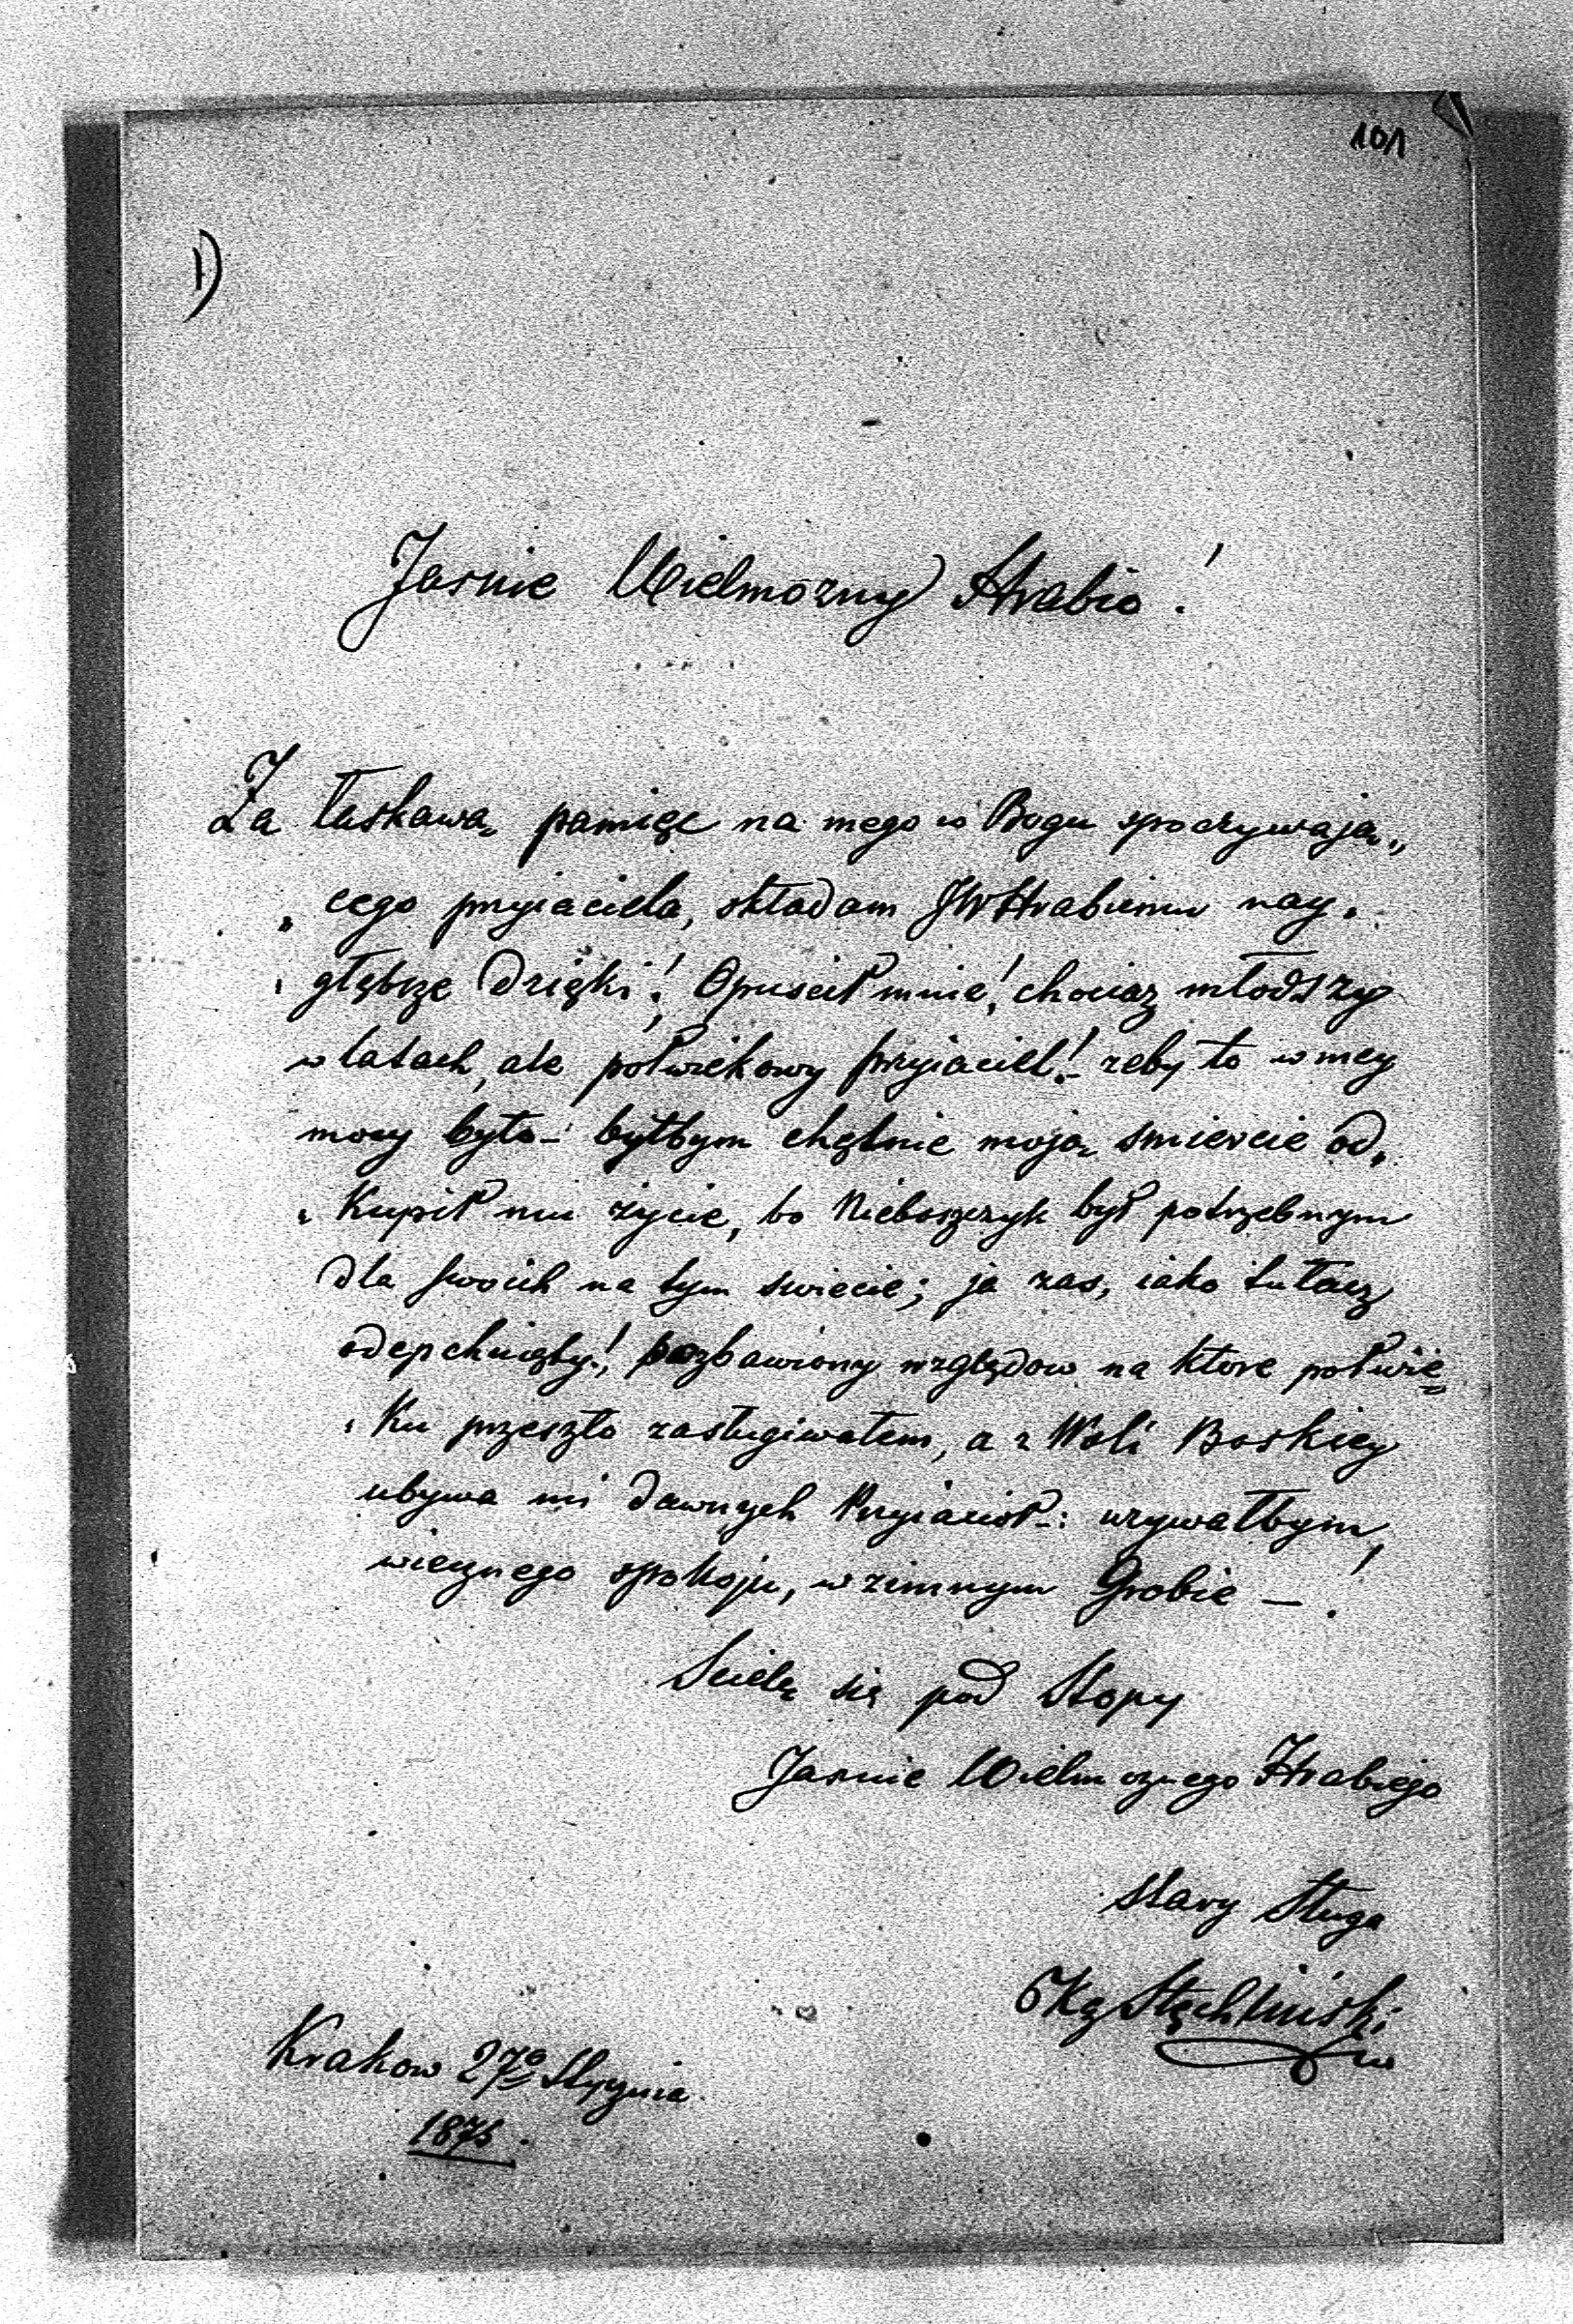 101
1)
Jasnie Wielmozny Hrabio!
Za łaskawą pamięć na mego w Bogu spoczywają„
„cego przyiaciela, składam JWHrabiemu nay„
„głębsze dzięki! Opuscił mnie! chociaz młodszy
w latach, ale połwiekowy przyiaciel!- zeby to w mey
mocy było- byłbym chętnie moją smiercie od„
„Kupił mu życie, bo Nieboszczyk był potrzebnym
dla swoich na tym swiecie; ja zas, iako tułacz
odepchnięty! pozbawiony względow na ktore połwie„
„Ku przeszło zasługiwałem, a z Woli Boskiey
ubywa mi dawnych Przyiacioł-: uzywałbym,
wiecznego spokoju, w zimnym Grobie —!
Scielę się pod Stopy
Jasnie Wielmoznego Hrabiego
stary sługa
Stęchlinski
Krakow 27º Stycznia
1875.